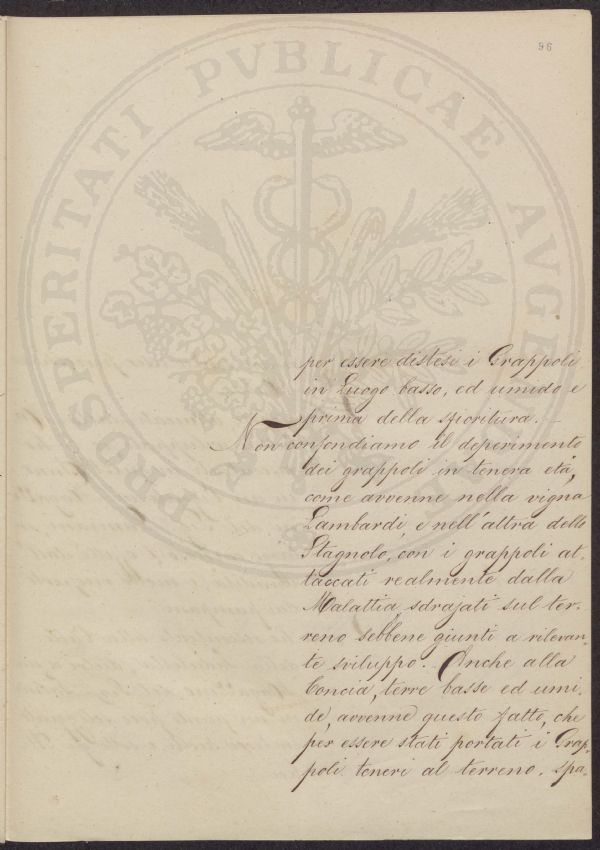 96
PROSPERITATI PVBLICAE AVGENDAE
per essere distesi i Grappoli
in Luogo basso, ed umido e
prima della sfioritura. —
Non confondiamo il deperimento
dei grappoli in tenera età,
come avvenne nella vigna
Lambardi, e nell'altra dello
Stagnolo, con i grappoli at-
taccati realmente dalla
Malattia, sdrajati sul ter-
reno sebbene giunti a rilevan-
te sviluppo. Anche alla
Concia, terre basse ed umi-
de, avvenne questo fatto, che
per essere stati portati i Grap-
poli teneri al terreno, spa-